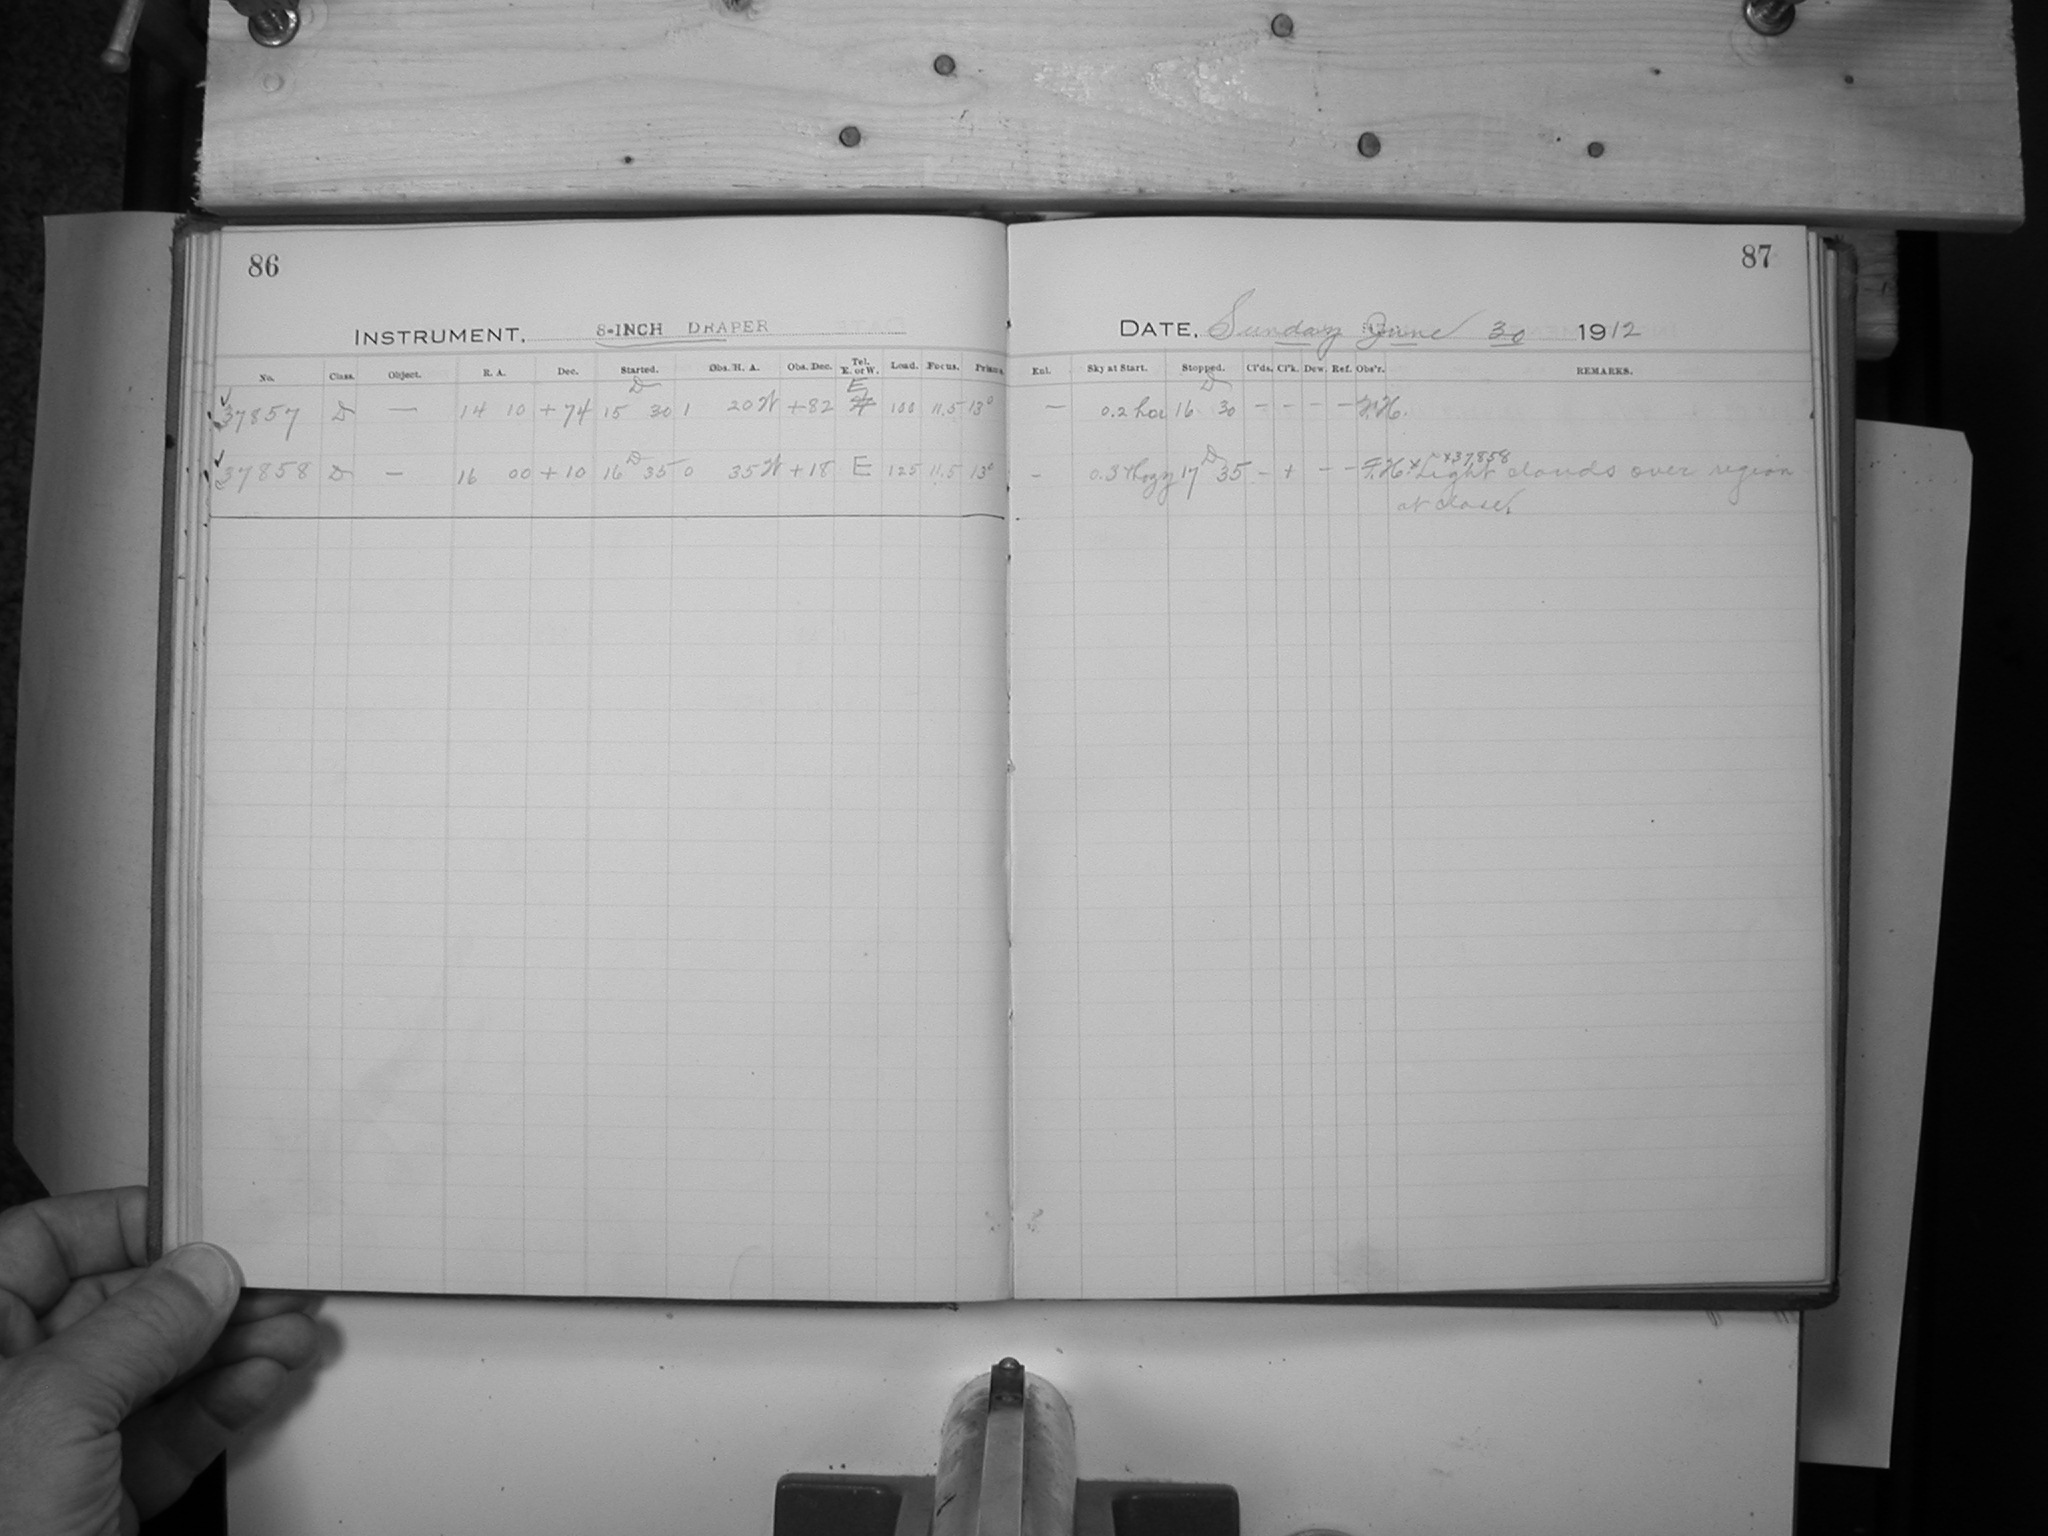 86
87
INSTRUMENT, 8-INCH DRAPER
DATE, Sunday June 30 1912
No. Class. Object. R. A. Dec. Started. Obs. H. A. Obs. Dec. Tel. E. or W. Load. Focus. Prisms. Exl. Sky at Start. Stopped. Cl'ds. Cl'k. Dew. Ref. Obs'r. REMARKS.
D E D
37857 D — 14 10 +74 15 30 1 20 W +82 W 100 11.5 13° — 0.2 16 30 – – – –
37858 D — 16 00 +10 16 D 35 0 35 W +18 E 125 11.5 13° - 0.3 17 D 35 – + – – F.H. x x37858 Light clouds over region
at close.